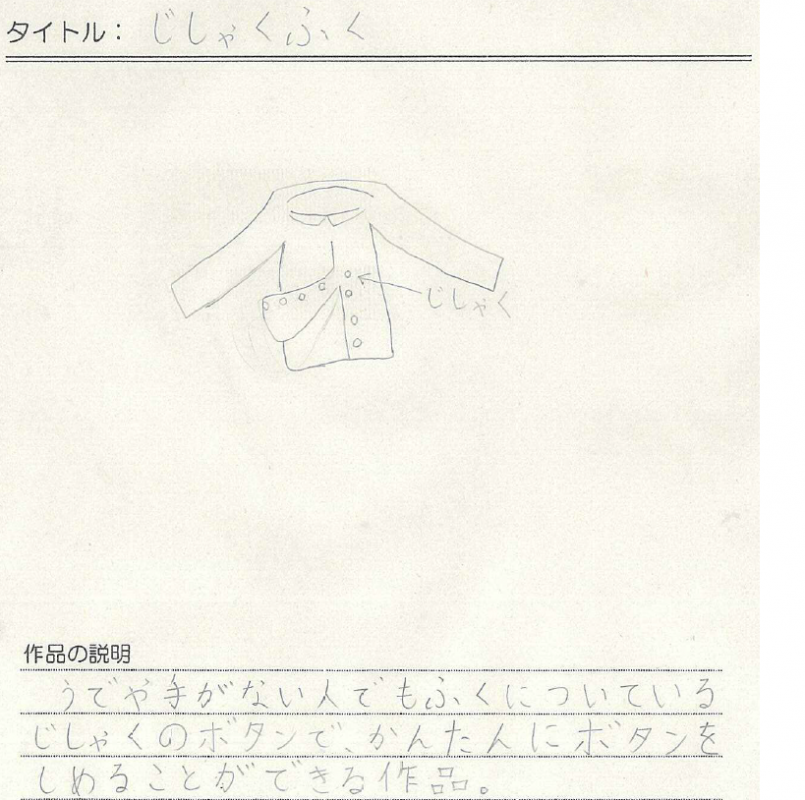 タイトル： じしゃくふく
じしゃく
作品の説明
うでや手がない人でもふくについている
じしゃくのボタンで、かんたんにボタンを
しめることができる作品。